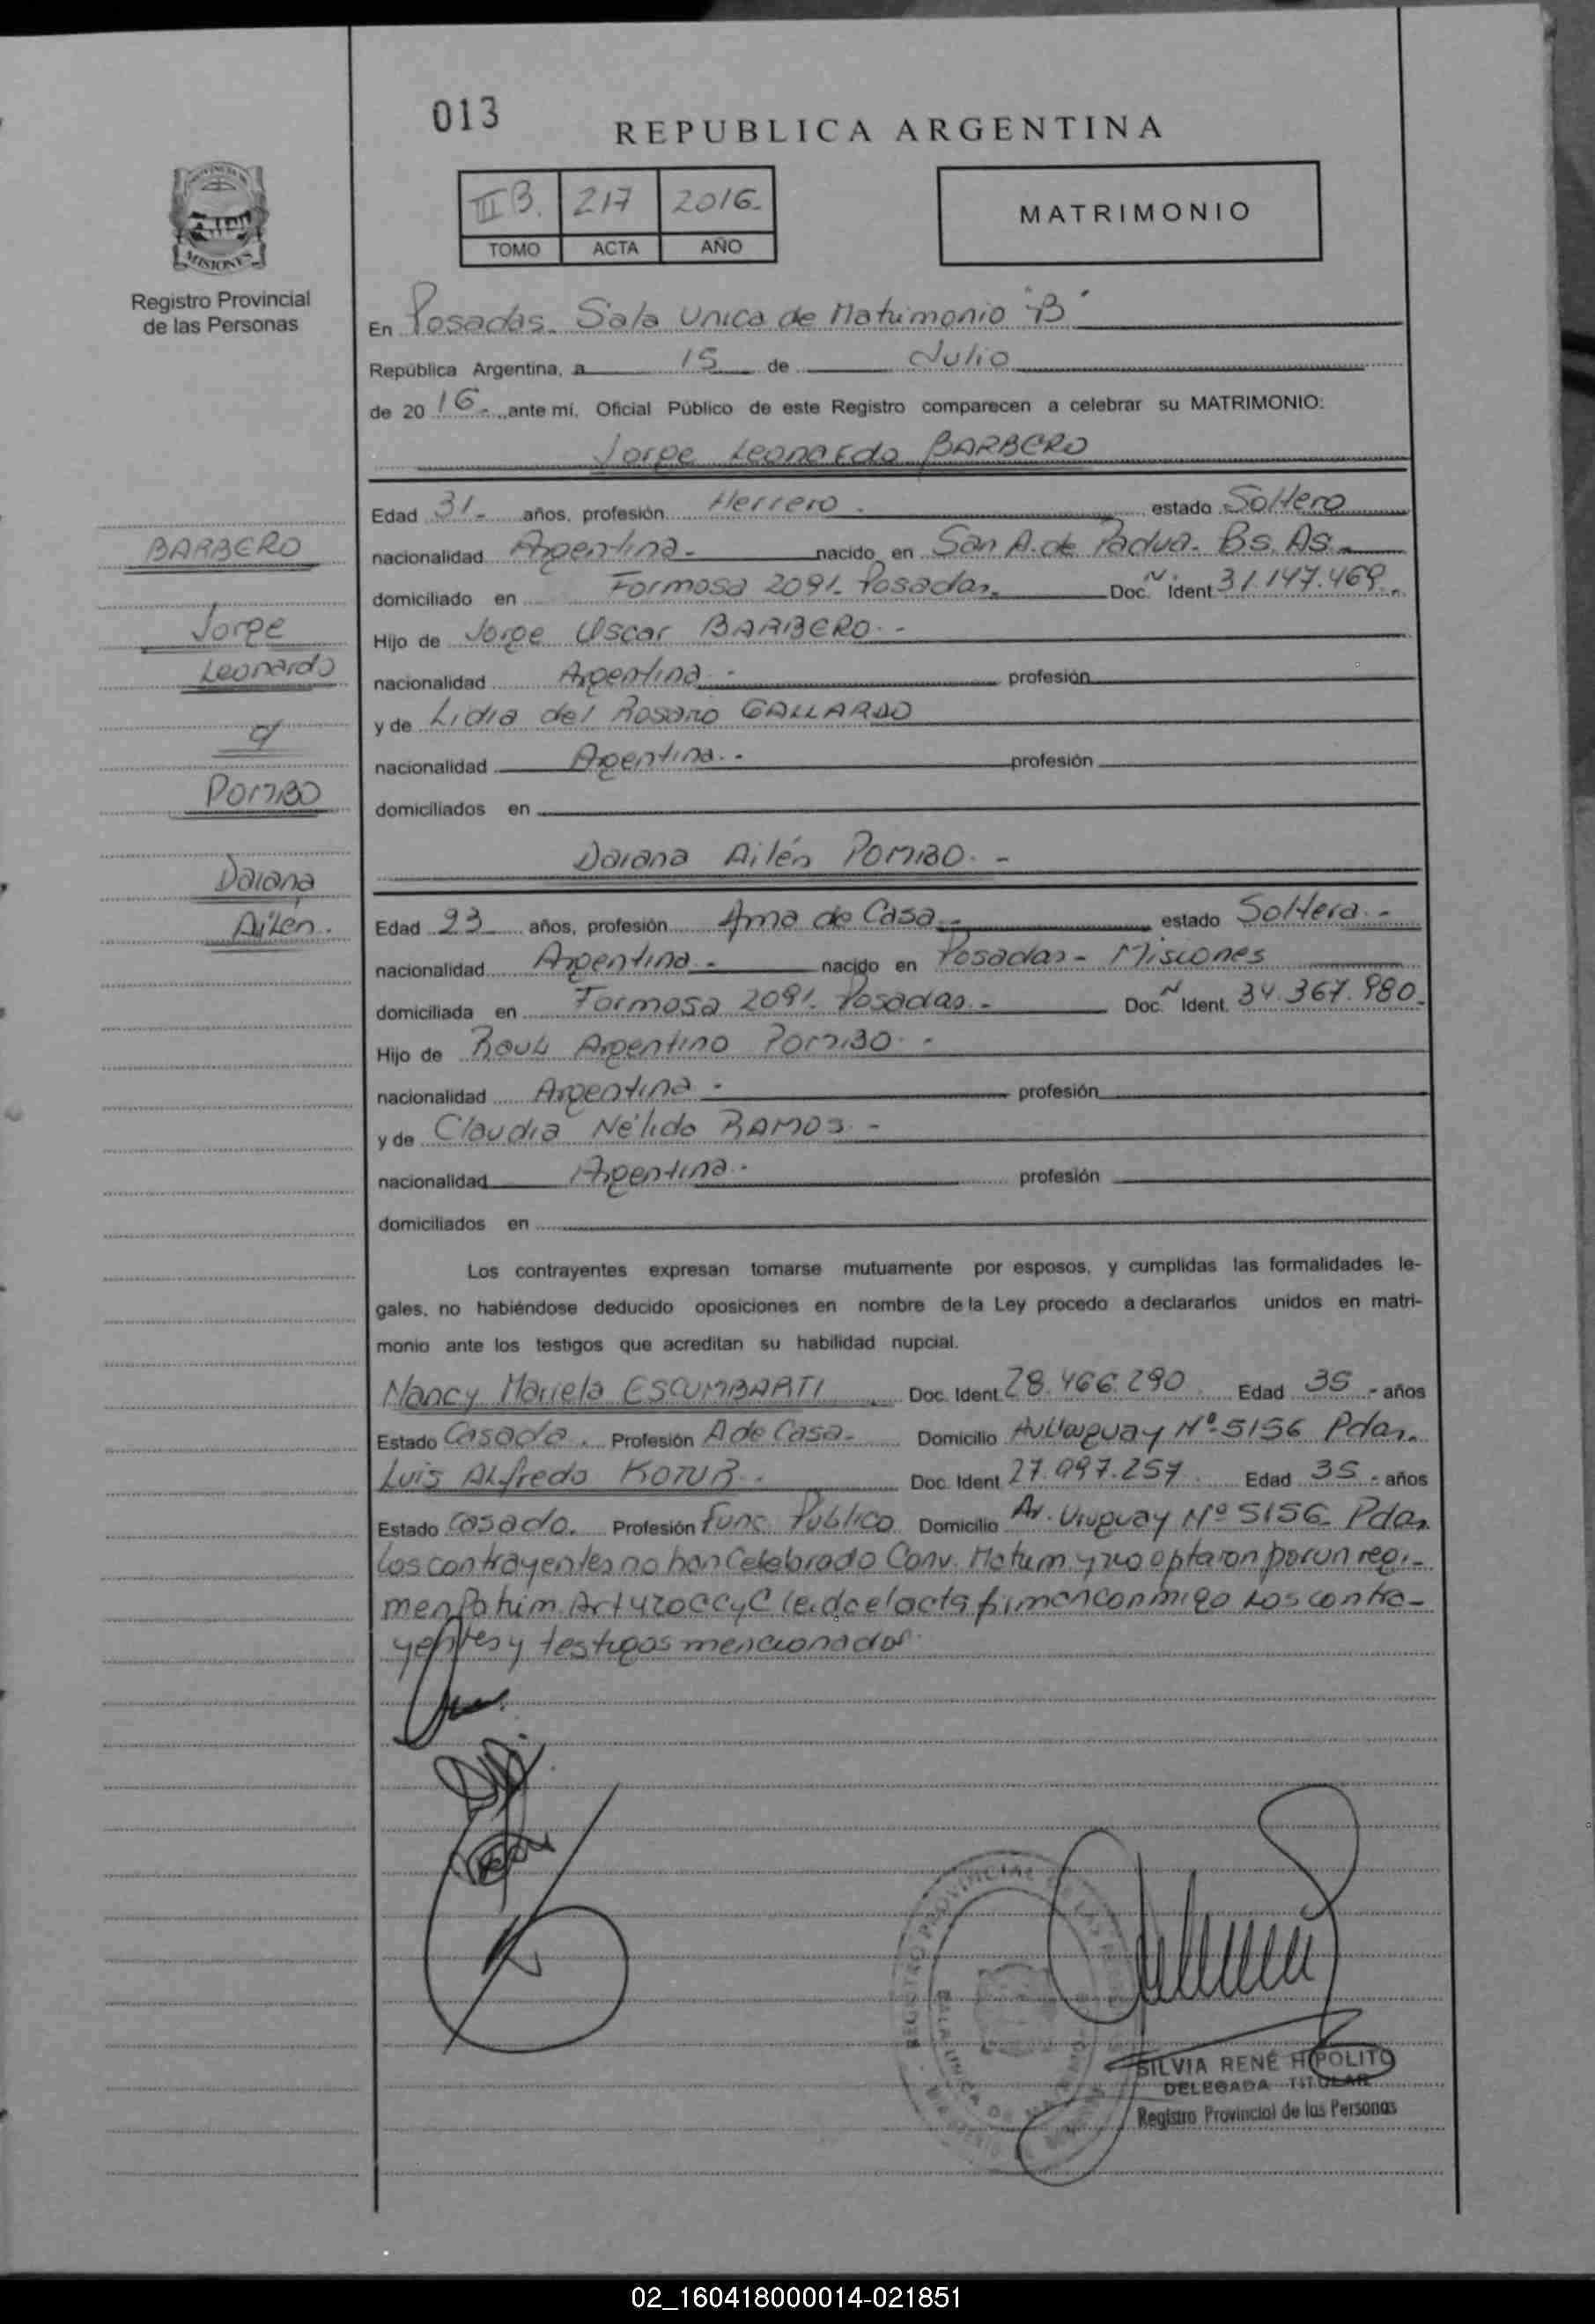 013
REPUBLICA ARGENTINA
III B. 217 2016.
TOMO ACTA AÑO
MATRIMONIO
MISIONES
Registro Provincial
de las Personas
En Posadas. Sala Unica de Matrimonio "B"
República Argentina, a 15 de Julio
de 20 16. ante mí, Oficial Público de este Registro comparecen a celebrar su MATRIMONIO:
Jorge Leonardo BARBERO
Edad 31.- años, profesión Herrero. estado Soltero
BARBERO
nacionalidad Argentina.- nacido en San A. de Padua. Bs. As.-
domiciliado en Formosa 2091. Posadas. Doc. N Ident 31.147.469.-
Jorge
Hijo de Jorge Oscar BARBERO.-
Leonardo
nacionalidad Argentina.- profesión
y de Lidia del Rosario GALLARDO
c/
nacionalidad Argentina.- profesión
POMBO
domiciliados en
Daiana Ailén POMBO.-
Daiana
Ailén.
Edad 23 años, profesión Ama de Casa.- estado Soltera.-
nacionalidad Argentina.- nacido en Posadas - Misiones
domiciliada en Formosa 2091. Posadas.- Doc. N Ident. 34.367.980.
Hijo de Raul Argentino POMBO.-
nacionalidad Argentina.- profesión
y de Claudia Nélida RAMOS.-
nacionalidad Argentina.- profesión
domiciliados en
Los contrayentes expresan tomarse mutuamente por esposos, y cumplidas las formalidades le-
gales, no habiéndose deducido oposiciones en nombre de la Ley procedo a declararlos unidos en matri-
monio ante los testigos que acreditan su habilidad nupcial.
Nancy Mariela ESCUMBARTI Doc. Ident. 28.466.290. Edad 35.- años
Estado Casada. Profesión A de Casa.- Domicilio Av Uruguay Nº 5156 Pdas.
Luis ALfredo KOTUR. Doc. Ident 27.997.257. Edad 35.- años
Estado Casado. Profesión Func. Público Domicilio Av. Uruguay Nº 5156 Pdas
Los contrayentes no han Celebrado Conv. Matrim y no optaron por un regi-
men Patrim. Art 420 CCyC leida el acta firman conmigo los contra-
yentes y testigos mencionados.
SILVIA RENÉ HIPOLITO
DELEGADA TITULAR
Registro Provincial de las Personas
02_160418000014-021851